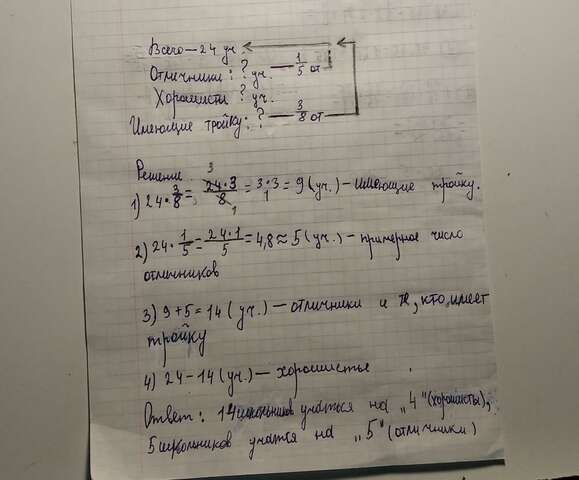 Всего — 24 уч.
Отличники: ? уч. — 1/5 от
Хорошисты ? уч.
Имеющие тройку: ? — 3/8 от
Решение
1) 24·3/8 = 24·3/8 = 3·3/1 = 9 (уч.) — имеющие тройку.
2) 24·1/5 = 24·1/5 = 4,8 ≈ 5 (уч.) — примерное число
отличников
3) 9+5=14 (уч.) — отличники и те, кто имеет
тройку
4) 24-14 (уч.) — хорошистье
Ответ: школьников учаться на „4" (хорошисты),
5 школьников учатся на „5" (отличники)